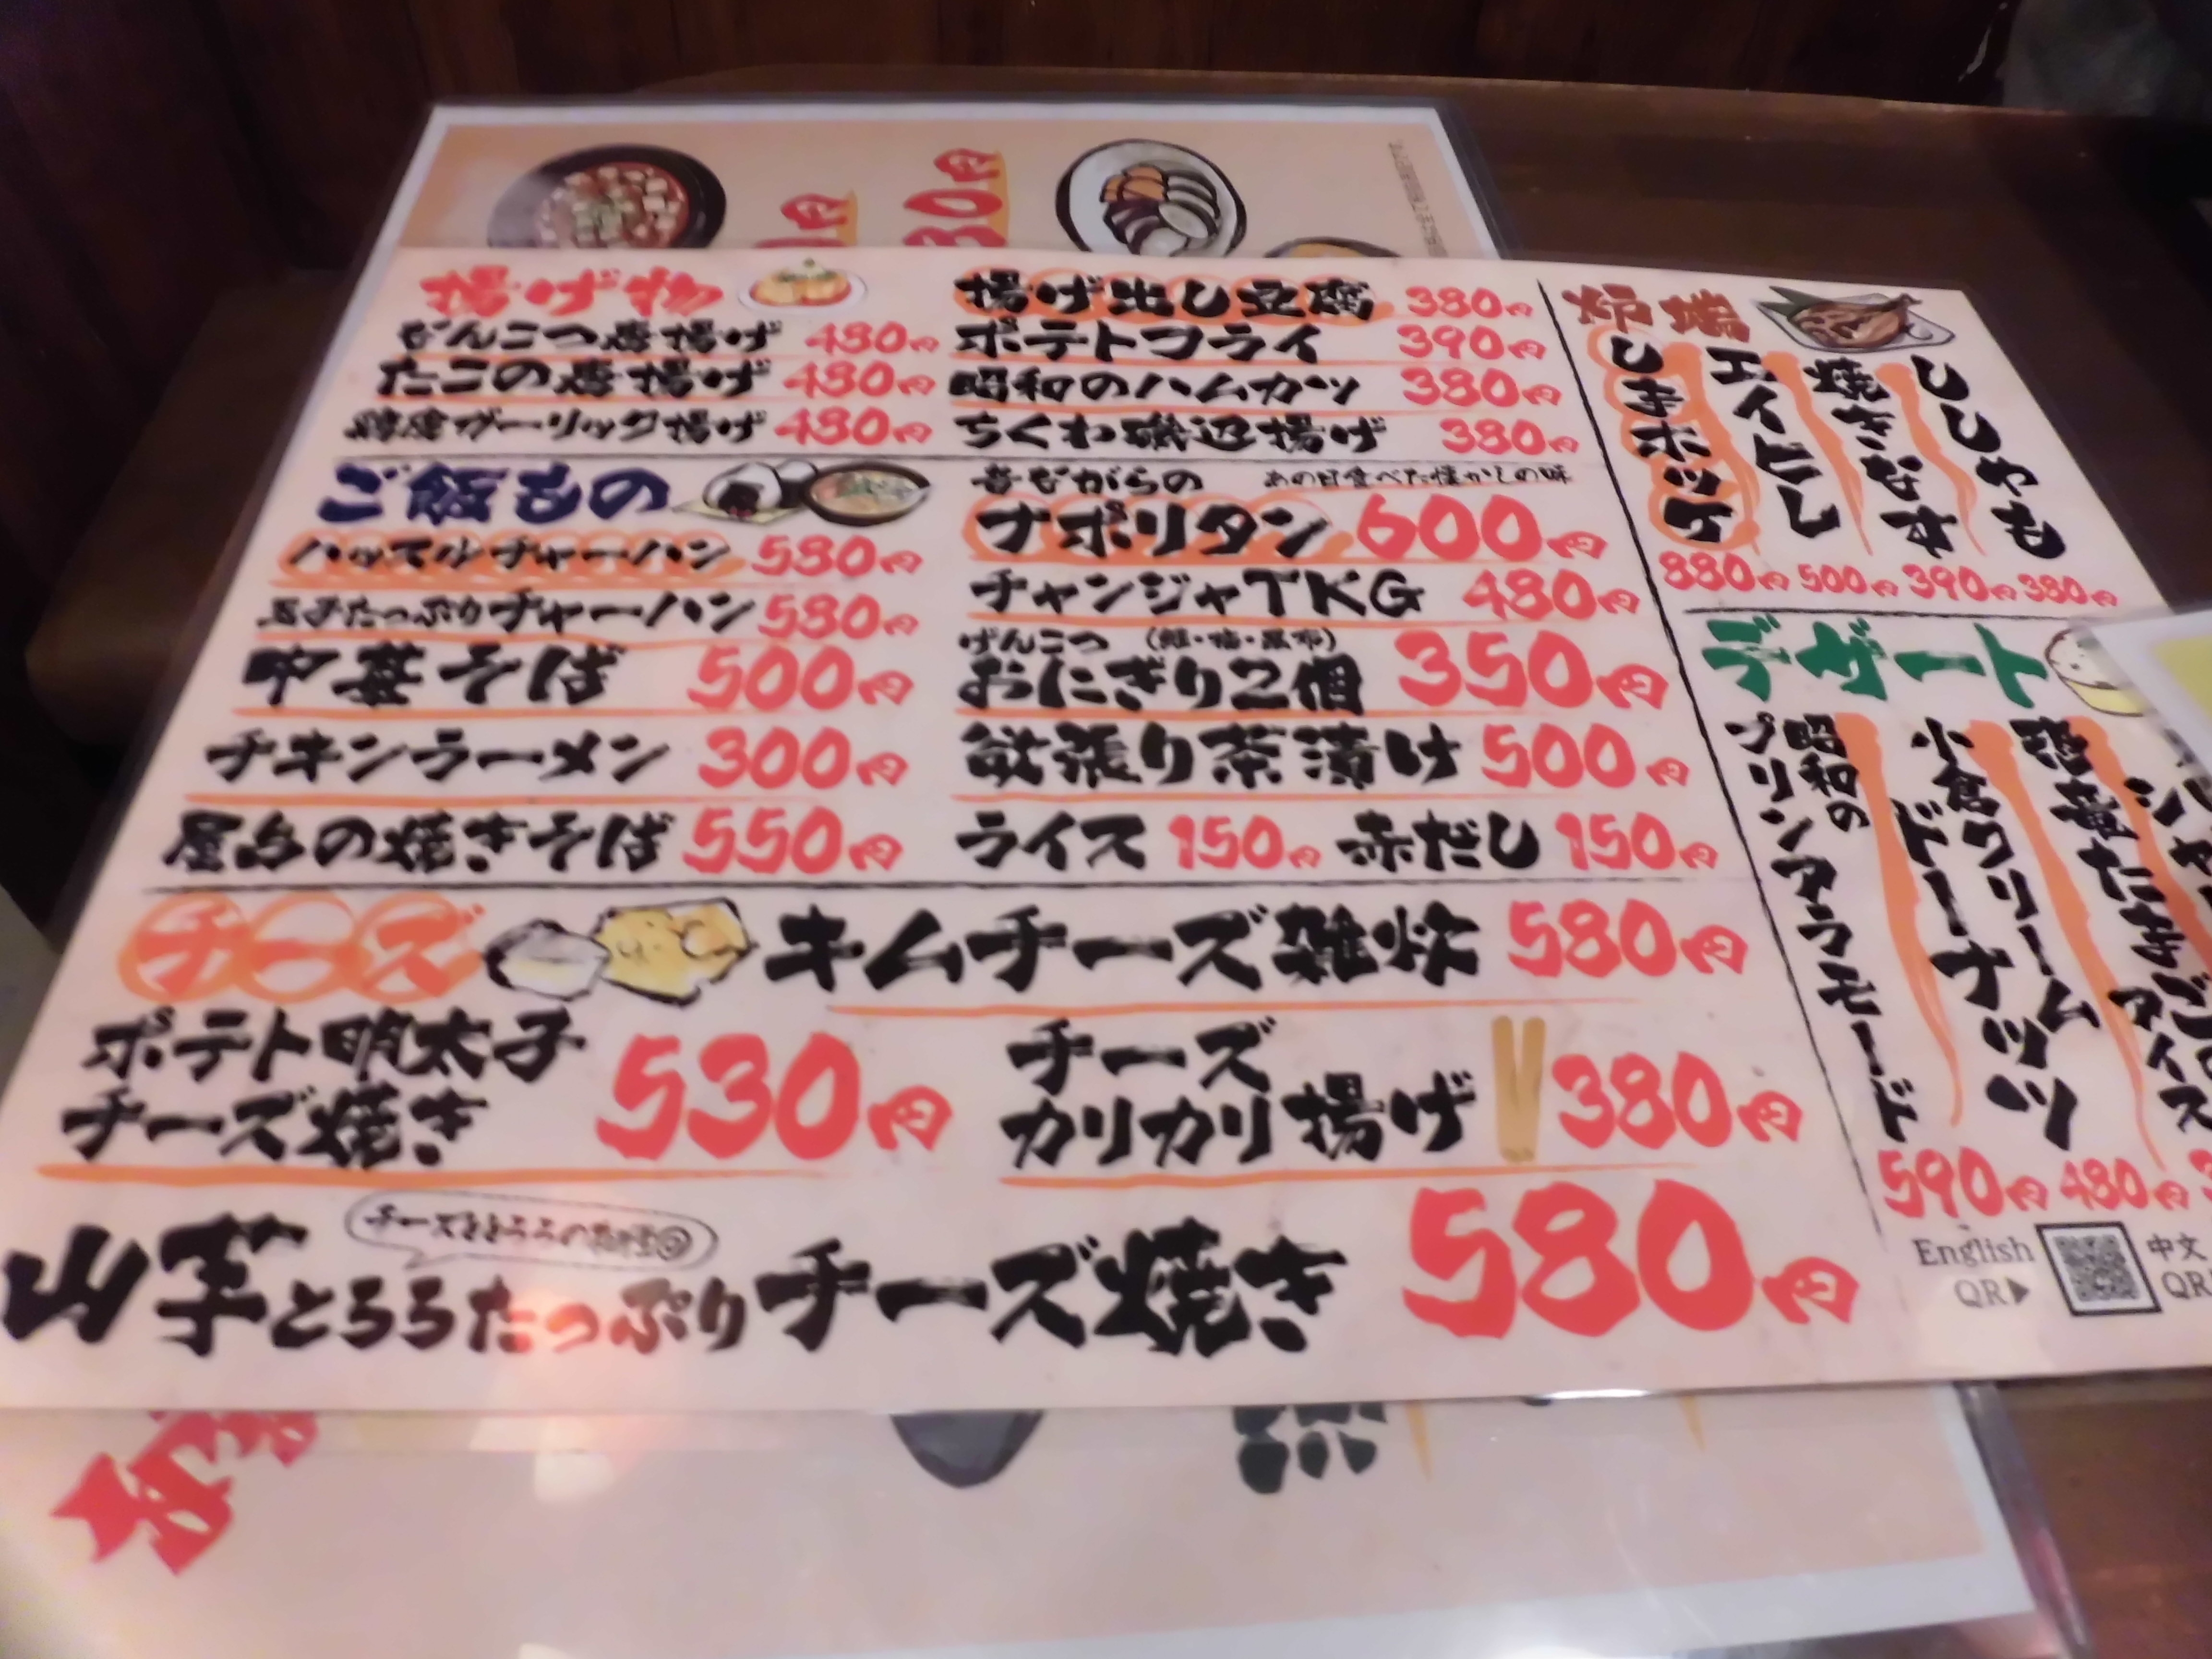 揚げ物
なんこつ唐揚げ 480円
たこの唐揚げ 480円
鶏皮ガーリック揚げ 480円
揚げ出し豆腐 380円
ポテトフライ 390円
昭和のハムカツ 380円
ちくわ磯辺揚げ 380円
ご飯もの
ハッスルチャーハン 580円
玉子たっぷりチャーハン 580円
中華そば 500円
チキンラーメン 300円
屋台の焼きそば 550円
昔ながらの あの日食べた懐かしの味
ナポリタン 600円
チャンジャTKG 480円
げんこつ (鮭・梅・昆布)
おにぎり2個 350円
欲張り茶漬け 500円
ライス 150円 赤だし 150円
チーズ
キムチーズ雑炊 580円
ポテト明太子
チーズ焼き 530円
チーズ
カリカリ揚げ 380円
チーズととろろの相性◎
山芋とろろたっぷりチーズ焼き 580円
ししゃも 380円
焼きなす 390円
エイヒレ 500円
しまホッケ 880円
デザート
小倉クリーム
ドーナッツ 480円
昭和の
プリンアラモード 590円
English
QR▶
中文
QR